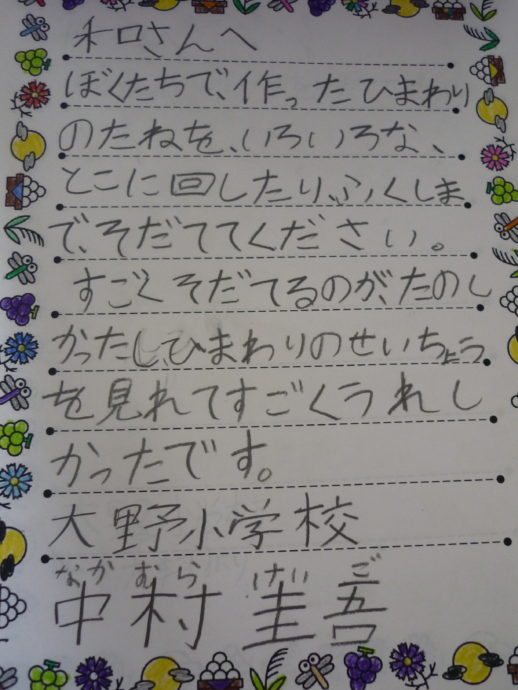 和口さんへ
ぼくたちで、作ったひまわり
のたねを、いろいろな、
とこに回したり、ふくしま
で、そだててください。
すごくそだてるのが、たのし
かったし、ひまわりのせいちょう
を見れてすごくうれし
かったです。
大野小学校
なかむら けいご
中村 圭吾